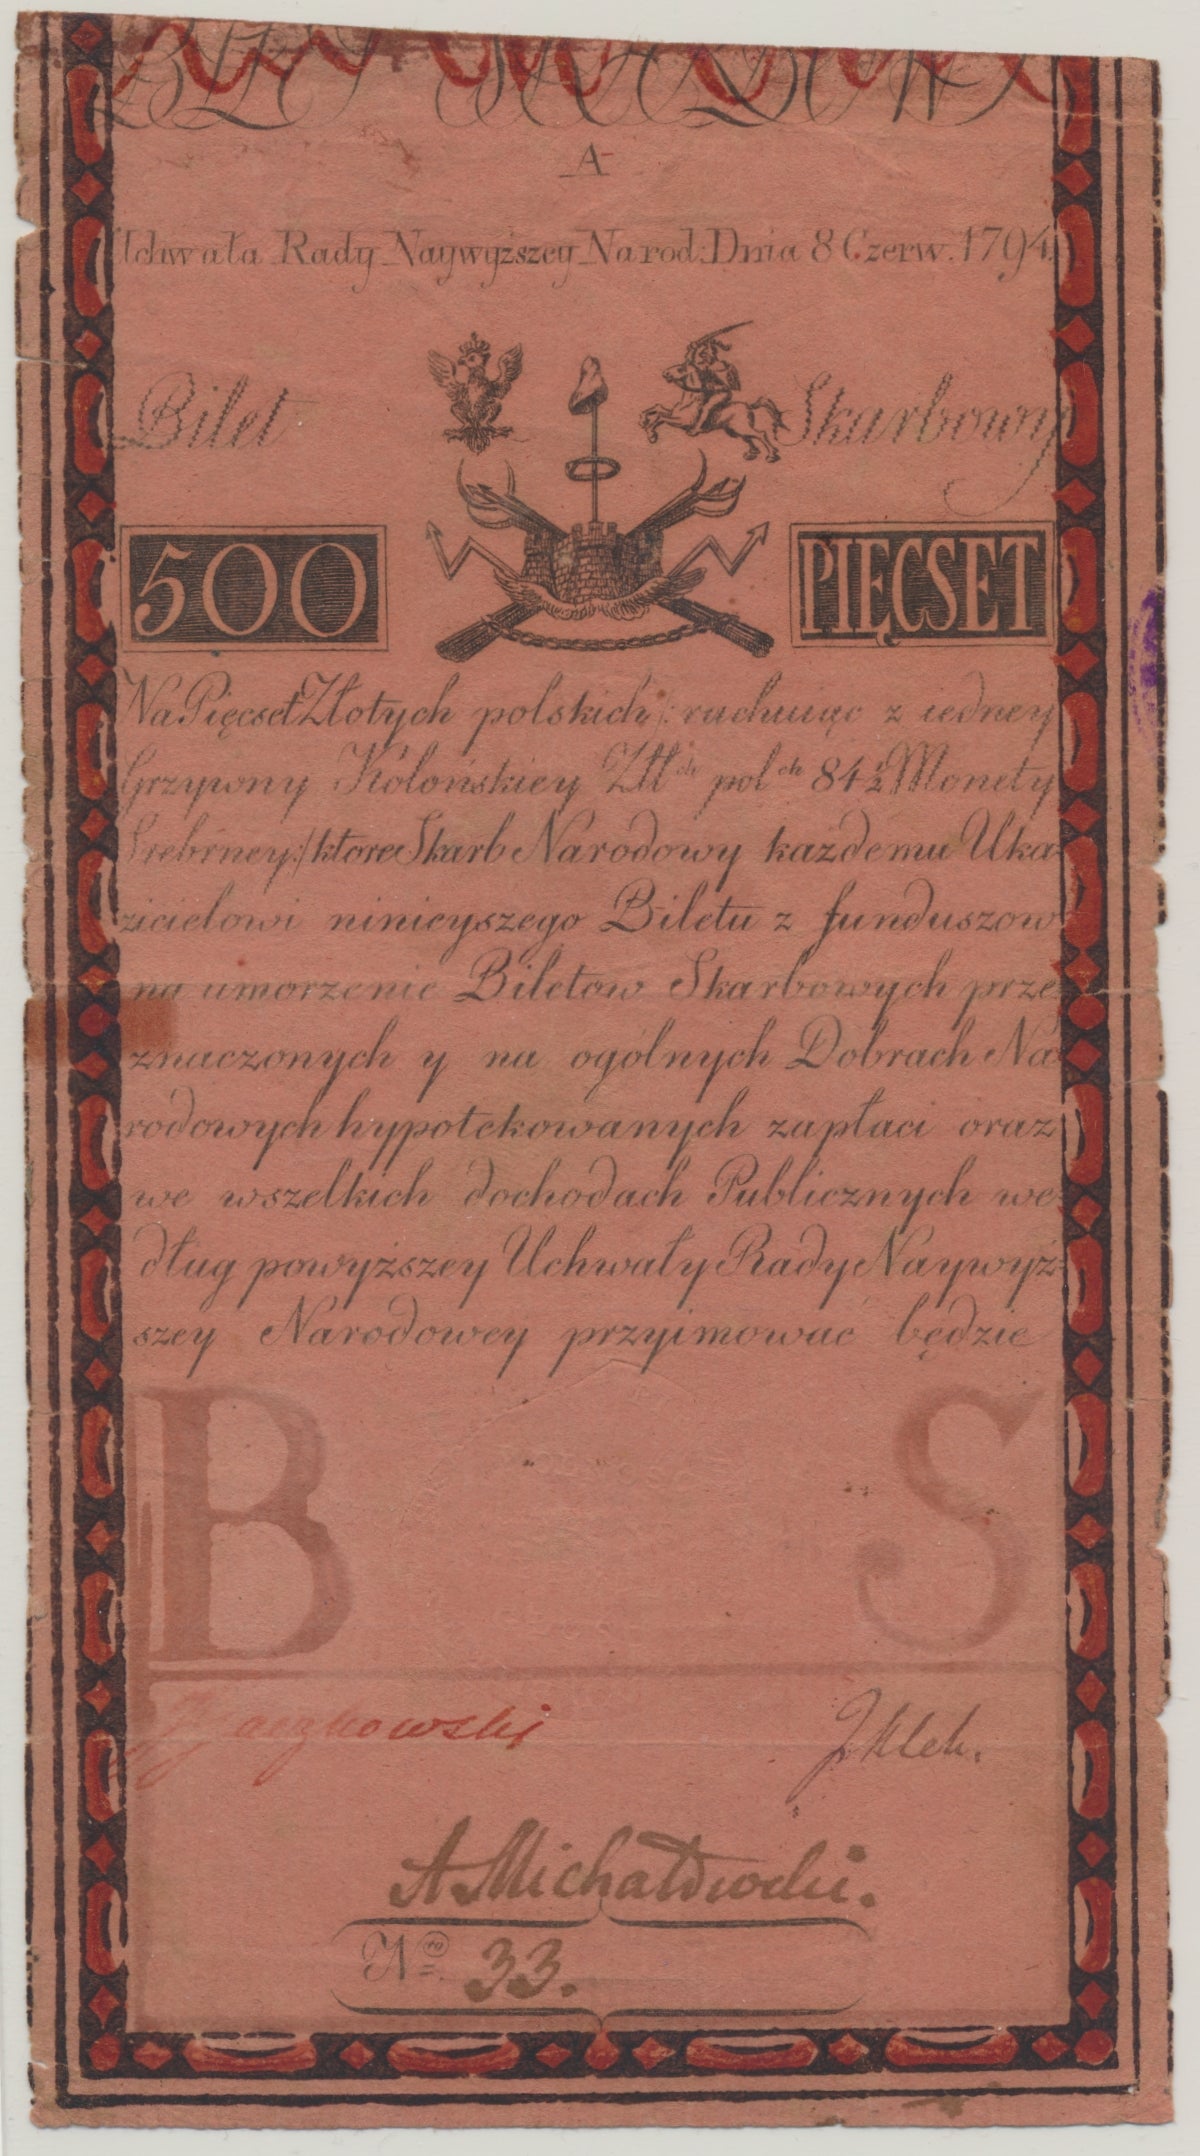 A
Uchwała Rady Naywyższey Narod: Dnia 8 Czerw. 1794.
Bilet Skarbowy
500 PIĘCSET
Na Pięcset Złotych polskich /: rachuiąc z iedney
Grzywny Kolońskiey Złł ch pol ch 84 1/2 Monety
Srebrney :/ ktore Skarb Narodowy każdemu Uka-
zicielowi ninieyszego Biletu z funduszow
na umorzenie Biletow Skarbowych prze-
znaczonych y na ogólnych Dobrach Na-
rodowych hypotekowanych zapłaci oraz
we wszelkich dochodach Publicznych we-
dług powyższey Uchwały Rady Naywyż-
szey Narodowey przyimowac będzie
B S
A Michałowski.
No 33.